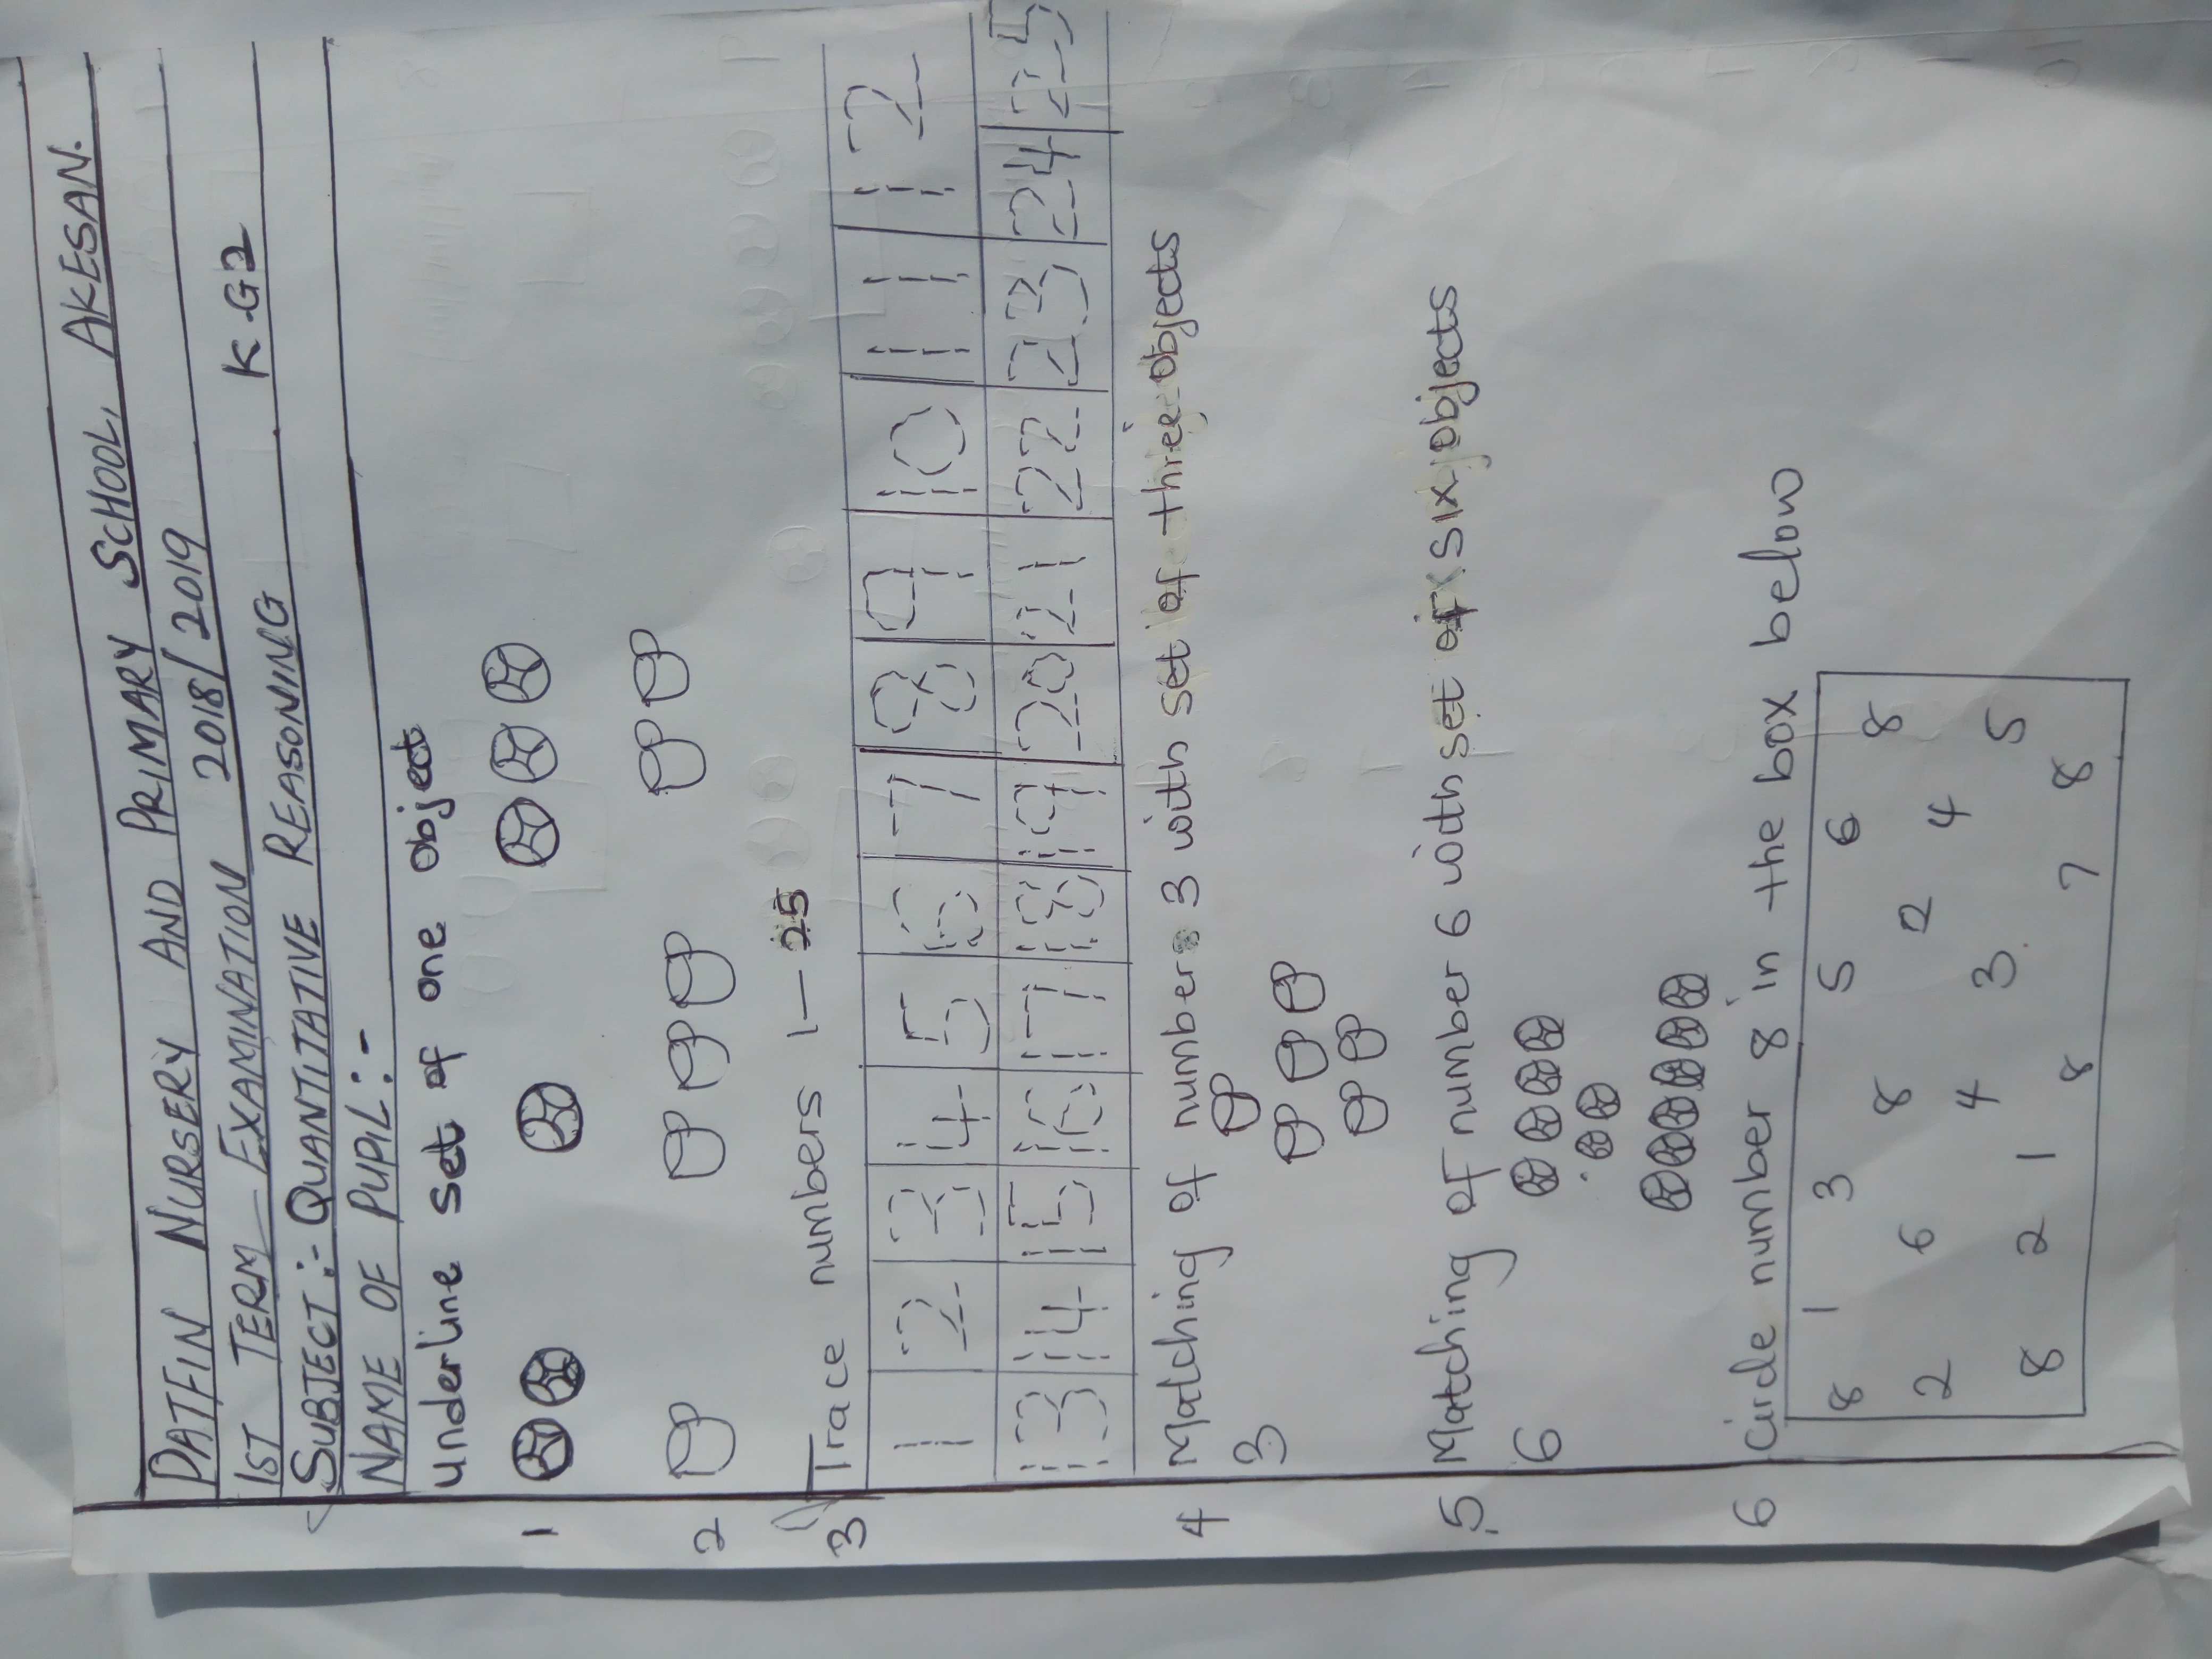 PATFIN NURSERY AND PRIMARY SCHOOL, AKESAN.
1ST TERM EXAMINATION 2018/2019
SUBJECT:- QUANTITATIVE REASONING K.G2
NAME OF PUPIL:-
underline set of one object
1
2
3 Trace numbers 1-25
1 2 3 4 5 6 7 8 9 10 11 12
13 14 15 16 17 18 19 20 21 22 23 24 25
4 Matching of number 3 with set of three objects
3
5 Matching of number 6 with set of six objects
6
6 Circle number 8 in the box below
8 1 3 5 6
2 6 8 2 4 8
4 3 5
8 2 1 8 7 8